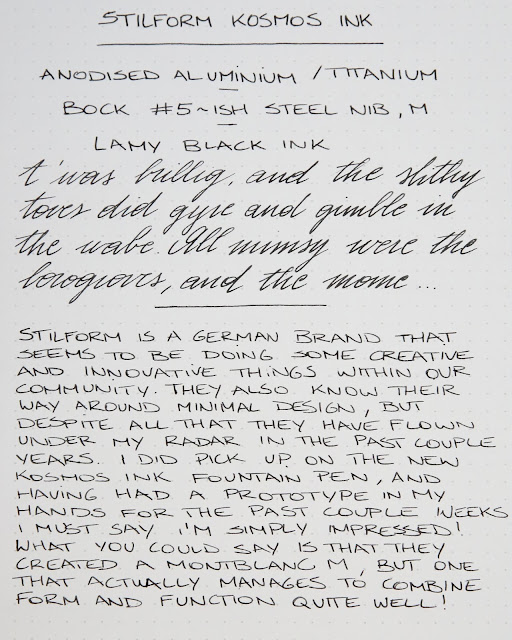 STILFORM KOSMOS INK
ANODISED ALUMINIUM / TITANIUM
BOCK #5~ISH STEEL NIB, M
LAMY BLACK INK
t'was brillig, and the slithy
toves did gyre and gimble in
the wabe. All mimsy were the
borogroves, and the mome ...
STILFORM IS A GERMAN BRAND THAT
SEEMS TO BE DOING SOME CREATIVE
AND INNOVATIVE THINGS WITHIN OUR
COMMUNITY. THEY ALSO KNOW THEIR
WAY AROUND MINIMAL DESIGN, BUT
DESPITE ALL THAT THEY HAVE FLOWN
UNDER MY RADAR IN THE PAST COUPLE
YEARS. I DID PICK UP ON THE NEW
KOSMOS INK FOUNTAIN PEN, AND
HAVING HAD A PROTOTYPE IN MY
HANDS FOR THE PAST COUPLE WEEKS
I MUST SAY I'M SIMPLY IMPRESSED!
WHAT YOU COULD SAY IS THAT THEY
CREATED A MONTBLANC M, BUT ONE
THAT ACTUALLY MANAGES TO COMBINE
FORM AND FUNCTION QUITE WELL!